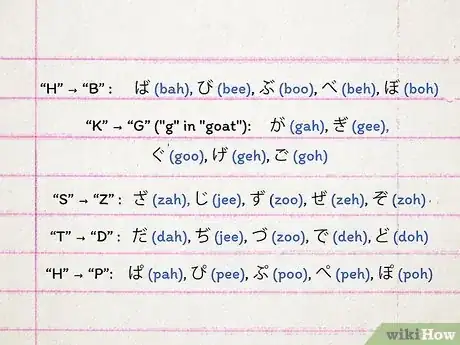 “H” → “B” : ば (bah), び (bee), ぶ (boo), べ (beh), ぼ (boh)
“K” → “G” ("g" in "goat"): が (gah), ぎ (gee),
ぐ (goo), げ (geh), ご (goh)
“S” → “Z” : ざ (zah), じ (jee), ず (zoo), ぜ (zeh), ぞ (zoh)
“T” → “D” : だ (dah), ぢ (jee), づ (zoo), で (deh), ど (doh)
“H” → “P” : ぱ (pah), ぴ (pee), ぷ (poo), ぺ (peh), ぽ (poh)
wikiHow